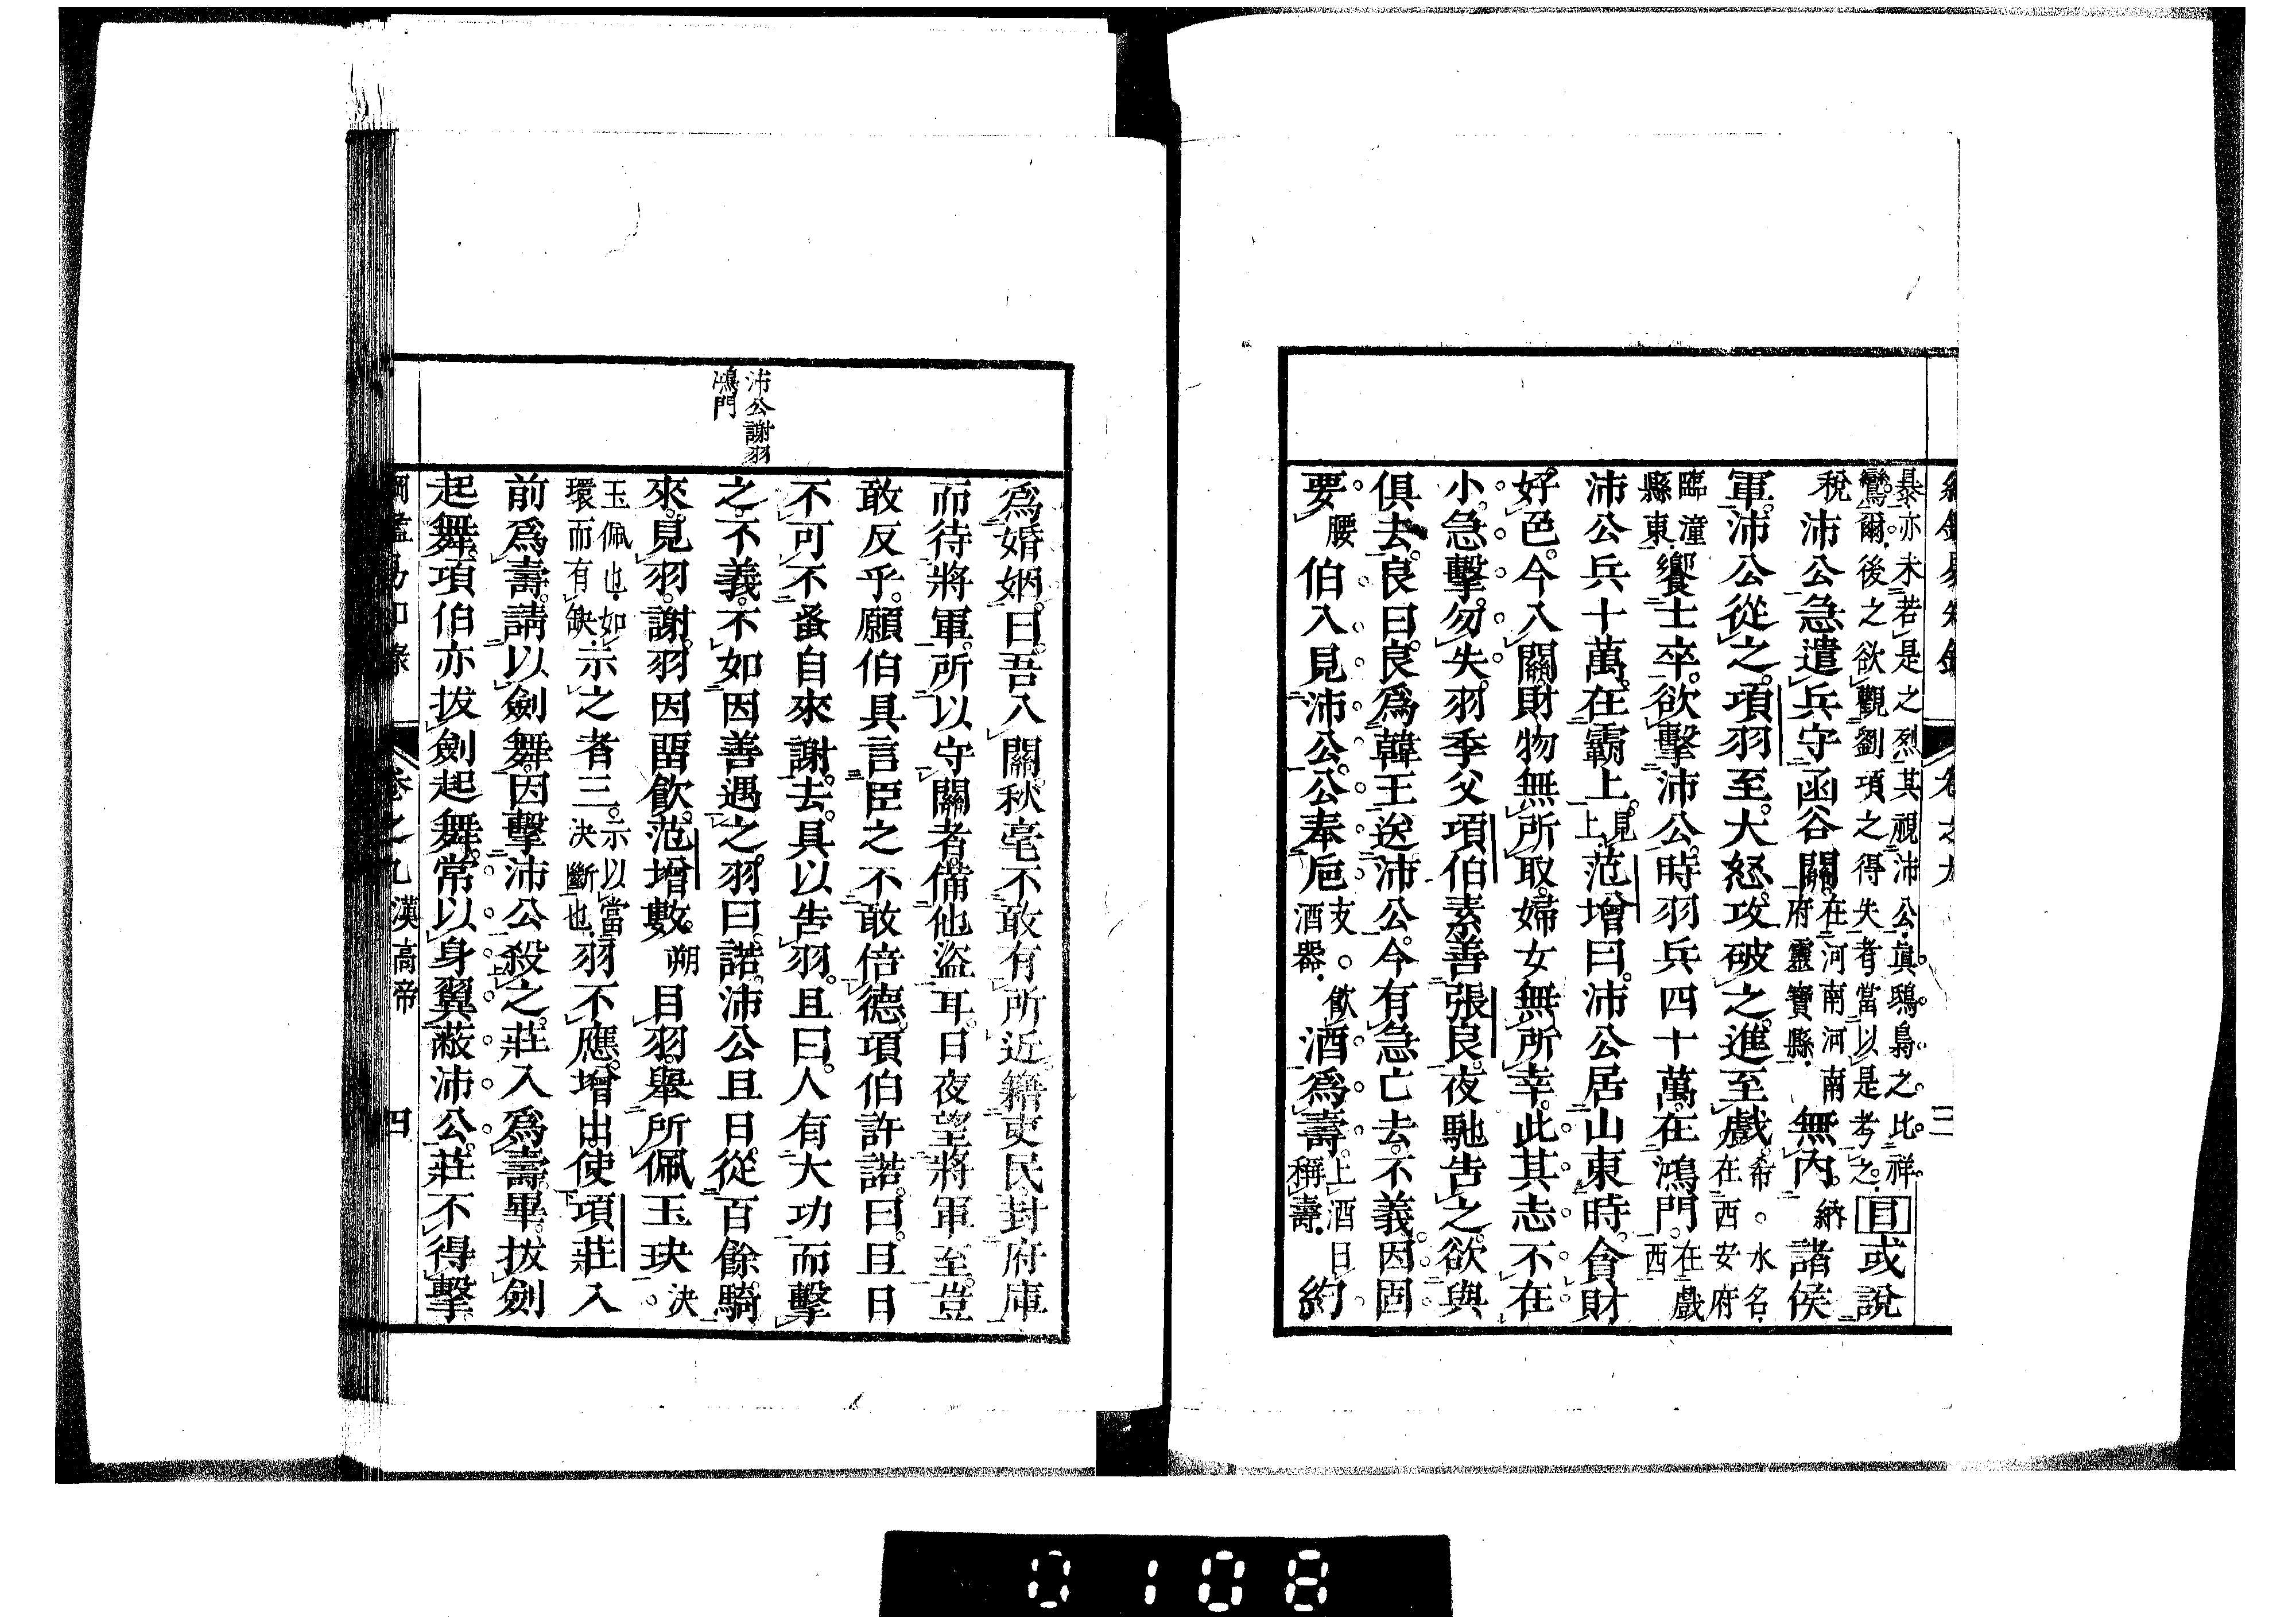 暴亦未若是之烈其視沛公真鴟梟之比祥
鸞爾後之欲觀劉項之得失者當以是考之目或說
稅沛公急遣兵守函谷關在河南河南府靈寶縣無內納諸侯
軍沛公從之項羽至大怒攻破之進至戲希水名在西安府
臨潼縣東饗士卒欲擊沛公時羽兵四十萬在鴻門在戲西
沛公兵十萬在霸上見上范增曰沛公居山東時貪財
好色今入關財物無所取婦女無所幸此其志不在
小急擊勿失羽季父項伯素善張良夜馳告之欲與
俱去良曰良為韓王送沛公今有急亡去不義因固
要腰伯入見沛公公奉巵支酒器飲酒為壽上酒曰稱壽約
卷之九 三
沛公謝羽
鴻門
為婚姻曰吾入關秋毫不敢有所近籍吏民封府庫
而待將軍所以守關者備他盜耳日夜望將軍至豈
敢反乎願伯具言臣之不敢倍德項伯許諾曰旦日
不可不蚤自來謝去具以告羽且曰人有大功而擊
之不義不如因善遇之羽曰諾沛公旦日從百餘騎
來見羽謝羽因留飲范增數朔目羽舉所佩玉玦決
玉佩也如環而有缺示之者三示以當決斷也羽不應增出使項莊入
前為壽請以劍舞因擊沛公殺之莊入為壽畢拔劍
起舞項伯亦拔劍起舞常以身翼蔽沛公莊不得擊
卷之九 漢高帝 四
0108